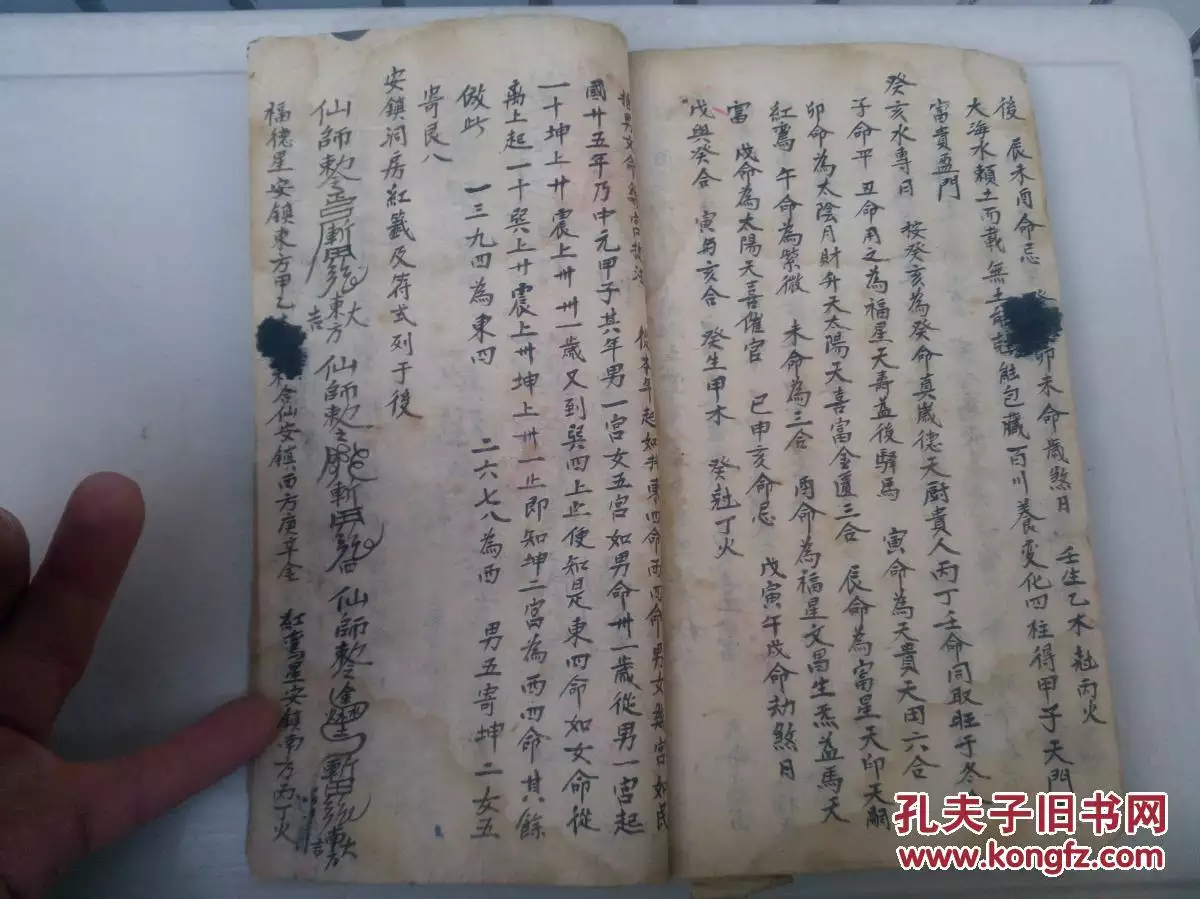 後 辰未酉命忌 卯未命歲煞日 壬生乙木尅丙火
大海水類土而載無土 能包藏百川養變化四柱得甲子天門
富貴盈門
癸亥水專日 按癸亥為癸命真歲德天厨貴人丙丁壬命同取旺于冬
子命平 丑命用之為福星天壽益後驛馬 寅命為天貴天因六合
卯命為太陰月財升天太陽天喜富金匱三合 辰命為富星天印天嗣
紅鸞 午命為紫微 未命為三合 酉命為福星文昌生炁益馬天
富 戌命為太陽天喜催官 巳申亥命忌 戊寅午戌命劫煞日
戊與癸合 寅与亥合 癸生甲木 癸尅丁火
從本年起如推東四命西四命男女幾宮如民
國廿五年乃中元甲子其年男一宮女五宮如男命卅一歲從男一宮起
一十坤上廿震上卅卅一歲又到巽四上止便知是東四命如女命從
禹上起一十巽上廿震上卅坤上卅一止即知坤二宮為西四命其餘
倣此 一三九四為東四 二六七八為西 男五寄坤二女五
寄艮八
安鎮洞房紅籤及符式列于後
仙師敕 東方大吉 仙師敕 仙師敕
福德星安鎮東方甲乙 合仙安鎮西方庚辛金 紅鸞星安鎮南方丙丁火
孔夫子旧书网
www.kongfz.com